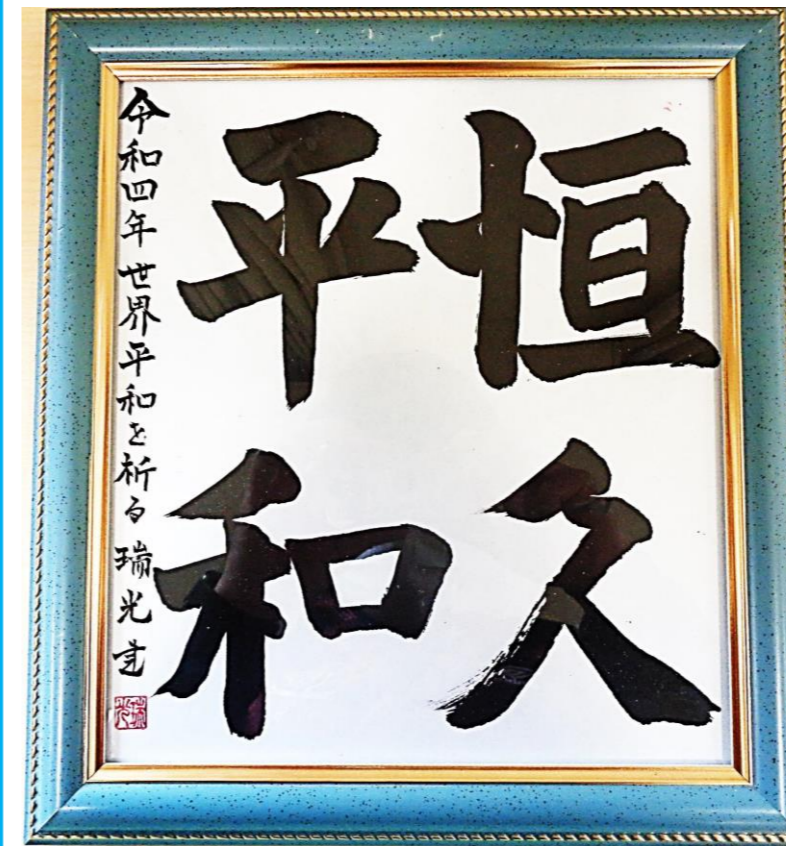 恒久
平和
令和四年 世界平和を祈る 瑞光書